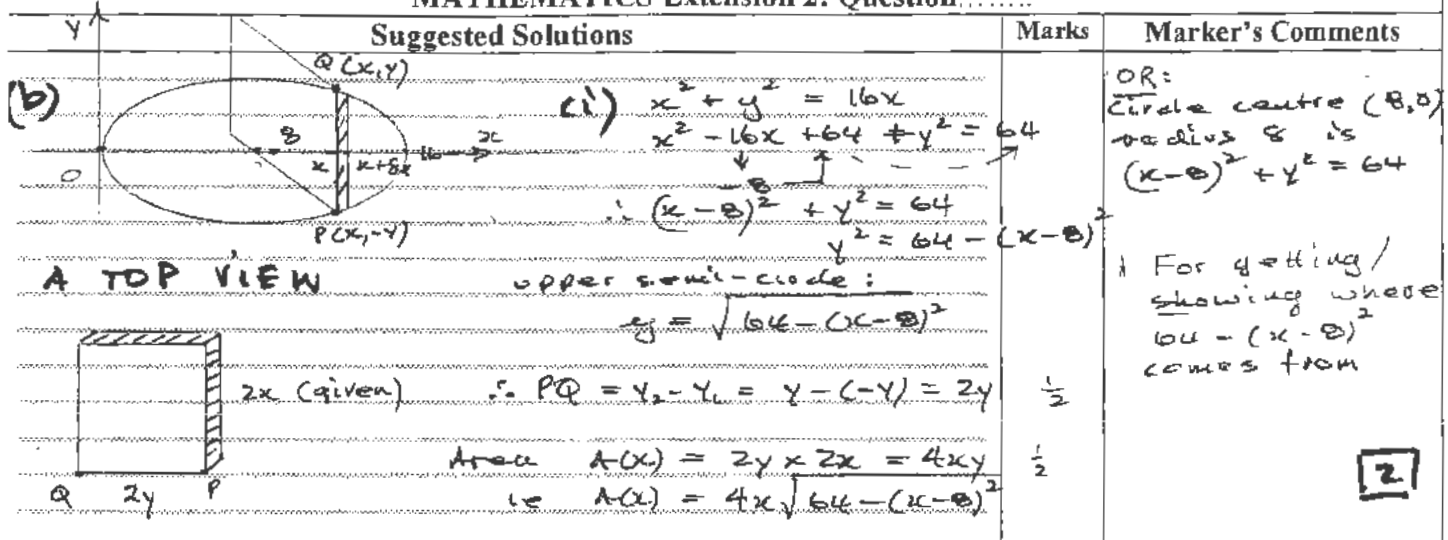 MATHEMATICS Extension 2: Question........
Suggested Solutions
Marks
Marker's Comments
(b)
y
Q(x,y)
8
x
x+δx
16
x
O
P(x,-y)
A TOP VIEW
2x (given)
Q 2y P
(i) x² + y² = 16x
x² - 16x + 64 + y² = 64
-8
∴ (x - 8)² + y² = 64
y² = 64 - (x-8)²
upper semi-circle:
y = √64-(x-8)²
∴ PQ = y₂-y₁ = y-(-y) = 2y
1/2
Area A(x) = 2y × 2x = 4xy
1/2
ie A(x) = 4x√64-(x-8)²
OR:
Circle centre (8,0)
radius 8 is
(x-8)² + y² = 64
1 For getting/
showing where
64 - (x-8)²
comes from
2